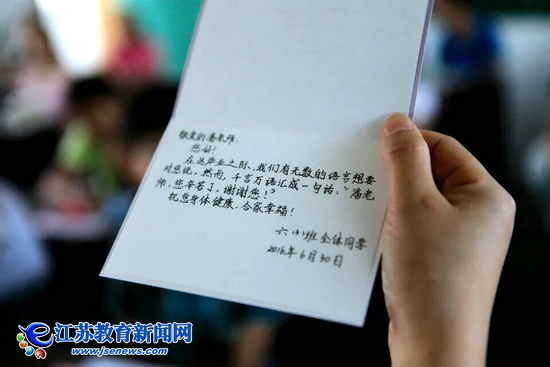 敬爱的潘老师，
您好！
在这毕业之际，我们有无数的语言想要
对您说，然而，千言万语汇成一句话：“潘老
师，您辛苦了，谢谢您！”
祝您身体健康、合家幸福！
六（3）班全体同学
2016年6月30日
江苏教育新闻网
www.jsenews.com